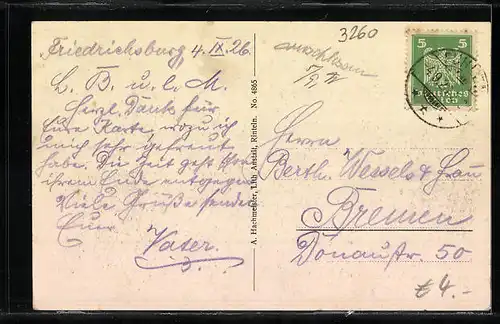 Friedrichsburg 4. IX. 26.
L. B. u. l. M.
Herzl. Dank für
Eure Karte, wozu ich
mich sehr gefreut
habe. Die Zeit geht schon
ihrem Ende entgegen
Viele Grüße sendet
Euer
Vater.
A. Hachmeister, Lith. Anstalt, Rinteln. No. 4865
3260
5 5
Deutsches
Herrn
Berth. Wessels & Frau
Bremen
Donaustr. 50
€ 4.-